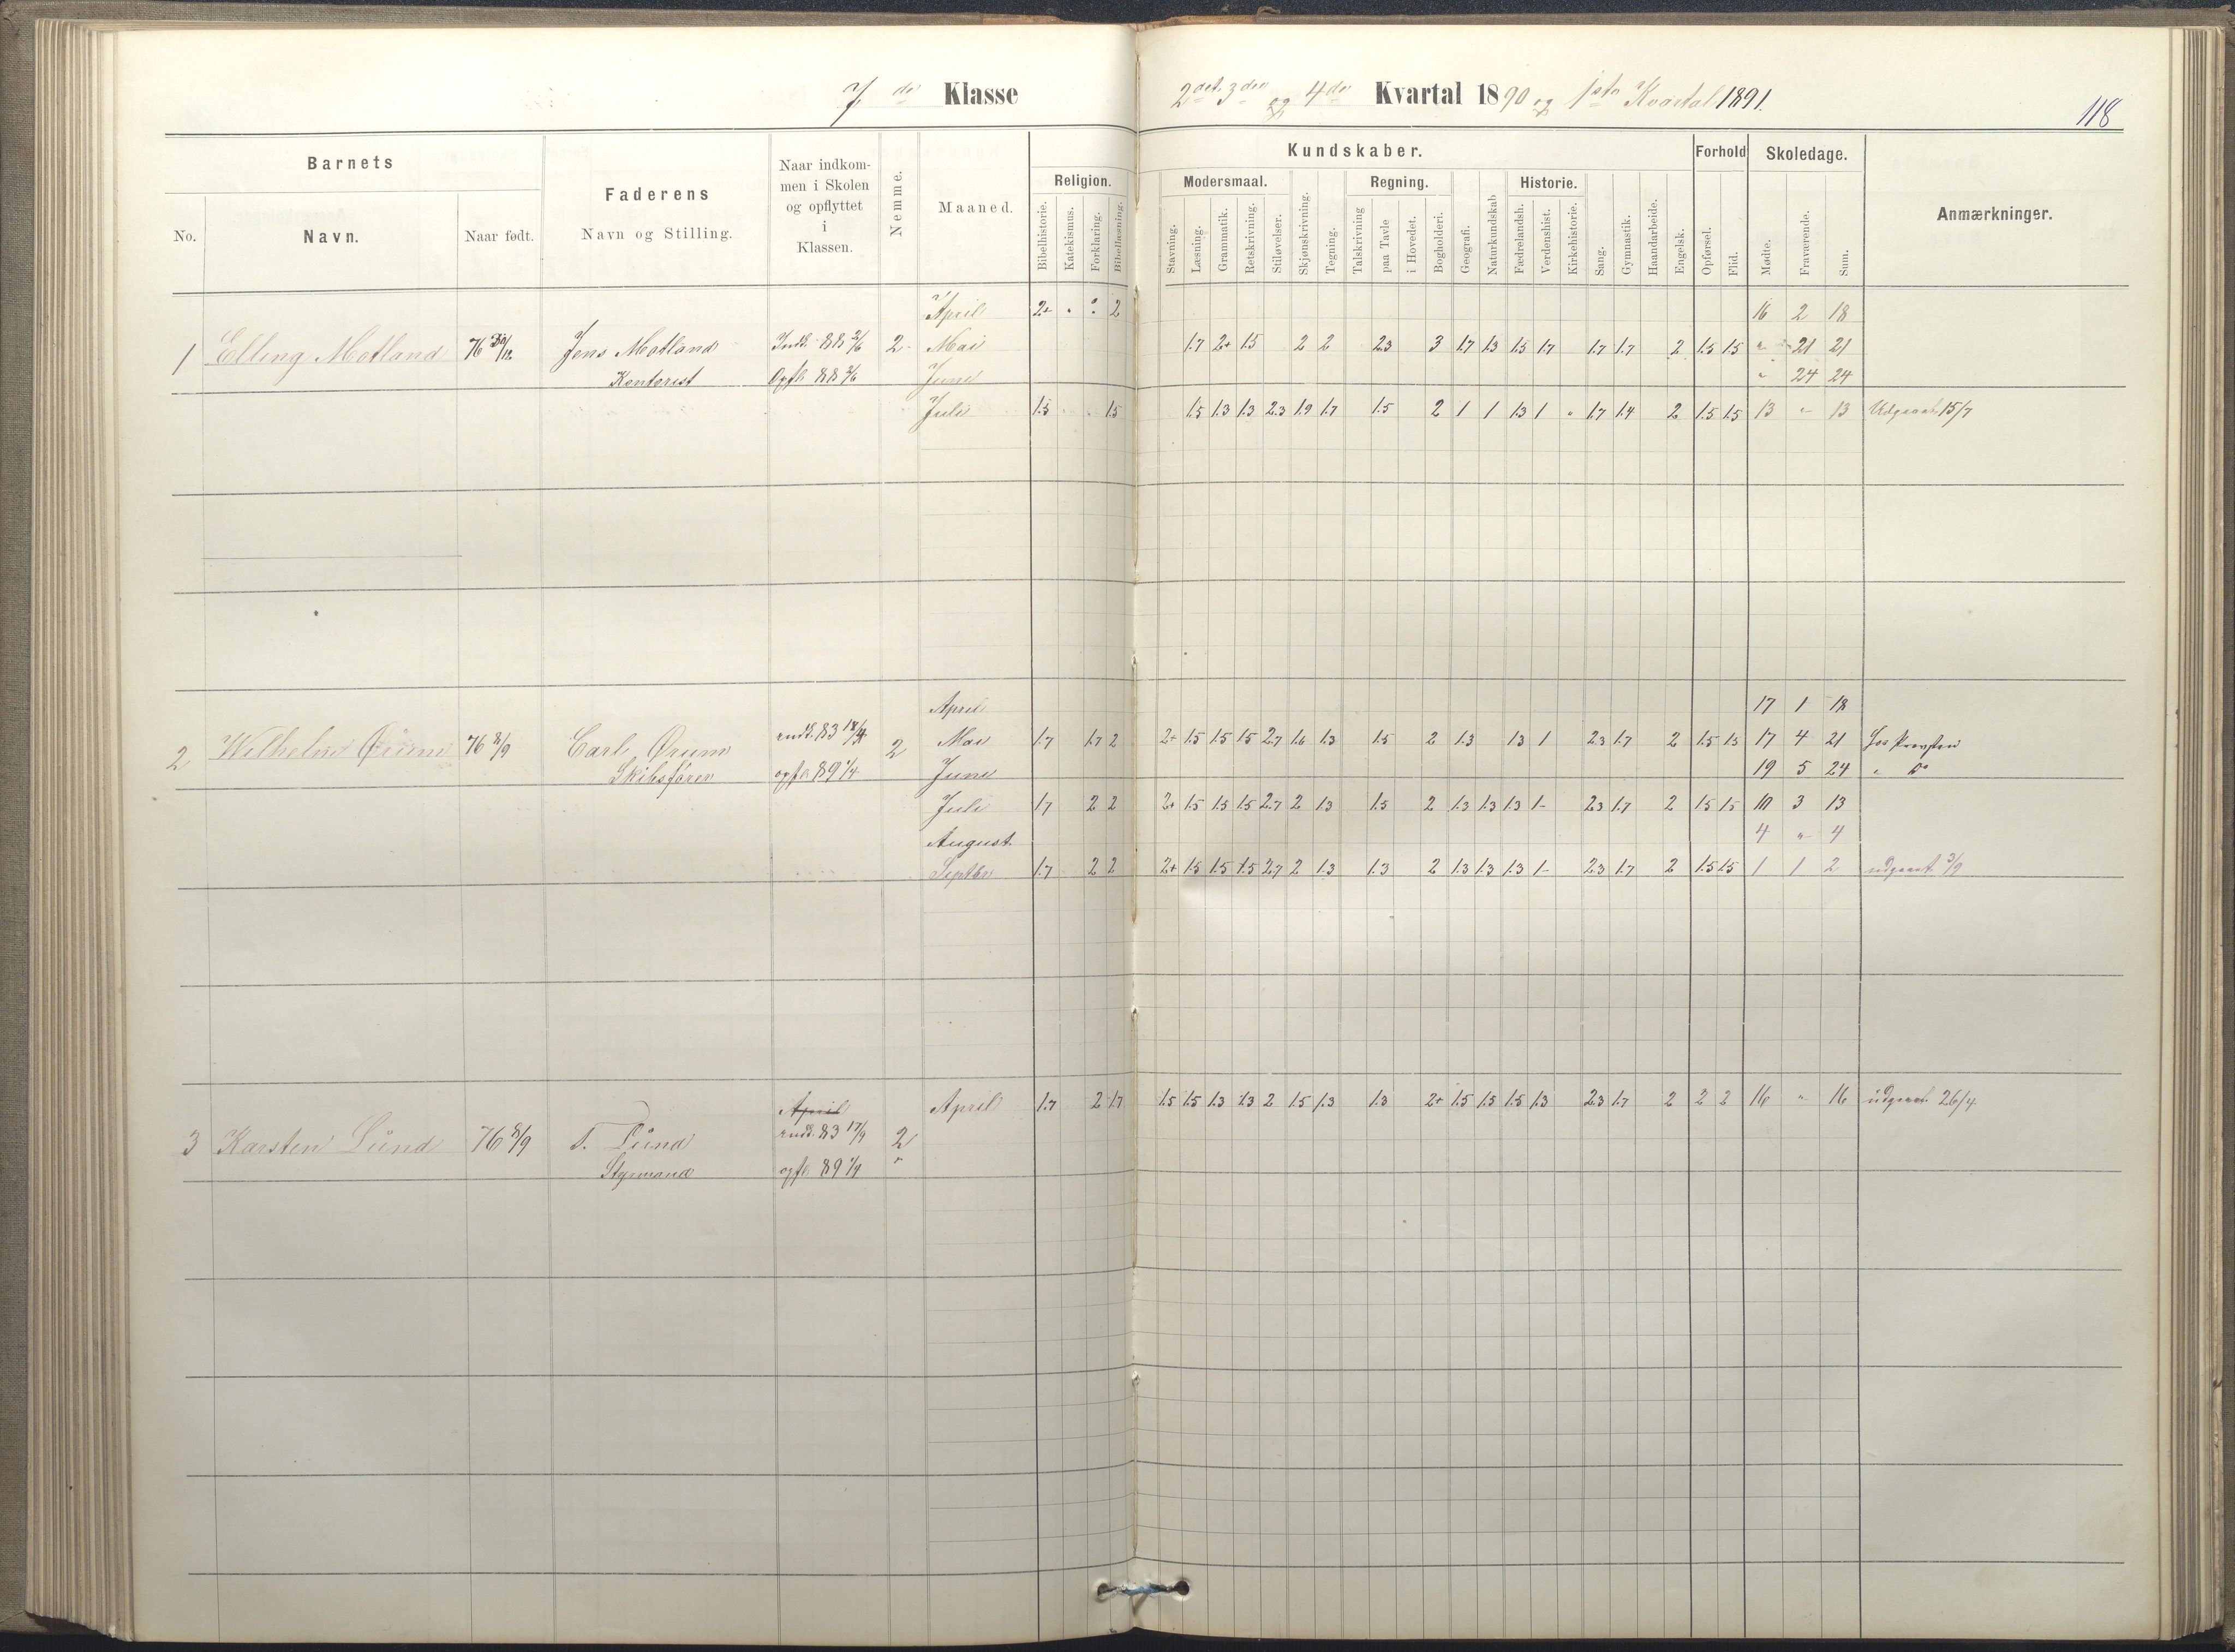 7de Klasse
2det 3die og 4de Kvartal 1890 og 1ste Kvartal 1891.
118
Barnets
No.
Navn.
Naar født.
Faderens
Navn og Stilling.
Naar indkom-
men i Skolen
og opflyttet
i
Klassen.
Nemme.
Maaned.
Kundskaber.
Religion.
Bibelhistorie.
Katekismus.
Forklaring.
Bibellæsning.
Modersmaal.
Stavning.
Læsning.
Grammatik.
Retskrivning.
Stiløvelser.
Skjønskrivning.
Tegning.
Regning.
Talskrivning
paa Tavle
i Hovedet.
Bogholderi.
Geografi.
Naturkundskab
Historie.
Fædrelandsh.
Verdenshist.
Kirkehistorie.
Sang.
Gymnastik.
Haandarbeide.
Engelsk.
Forhold
Opførsel.
Flid.
Skoledage.
Mødte.
Fraværende.
Sum.
Anmærkninger.
April 2+ 2 16 2 18
1 Elling Motland 76 30/12 Jens Motland Indk. 88 2/6 2 Mai 1.7 2+ 1.5 2 2 2.3 3 1.7 1.3 1.5 1.7 1.7 1.7 2 1.5 1.5 " 21 21
Kontorist Opfl. 88 2/6 Juni " 24 24
Juli 1.5 1.5 1.5 1.3 1.3 2.3 1.9 1.7 1.5 2 1 1 1.3 1 " 1.7 1.4 2 1.5 1.5 13 " 13 Udgaaet 15/7
April 17 1 18
2 Wilhelm Ørum 76 8/9 Carl Ørum indk. 83 2 Mai 1.7 1.7 2 2+ 1.5 1.5 1.5 2.7 1.6 1.3 1.5 2 1.3 1.3 1 2.3 1.7 2 1.5 1.5 17 4 21 Hos Provsten
Skibsfører opfl. 89 1/4 Juni 19 5 24 " Do
Juli 1.7 2 2 2+ 1.5 1.5 1.5 2.7 2 1.3 1.5 2 1.3 1.3 1.3 1- 2.3 1.7 2 1.5 1.5 10 3 13
August. 4 " 4
Septbr 1.7 2 2 2+ 1.5 1.5 1.5 2.7 2 1.3 1.3 2 1.3 1.3 1.3 1- 2.3 1.7 2 1.5 1.5 1 1 2 udgaaet 3/9
April April 1.7 2 1.7 1.5 1.5 1.3 1.3 2 1.5 1.3 1.3 2+ 1.5 1.5 1.5 1.3 2.3 1.7 2 2 2 16 " 16 udgaaet 26/4
3 Karsten Lund 76 8/9 T. Lund indk. 83 17/9 2
Styrmand opfl. 89 1/9 "